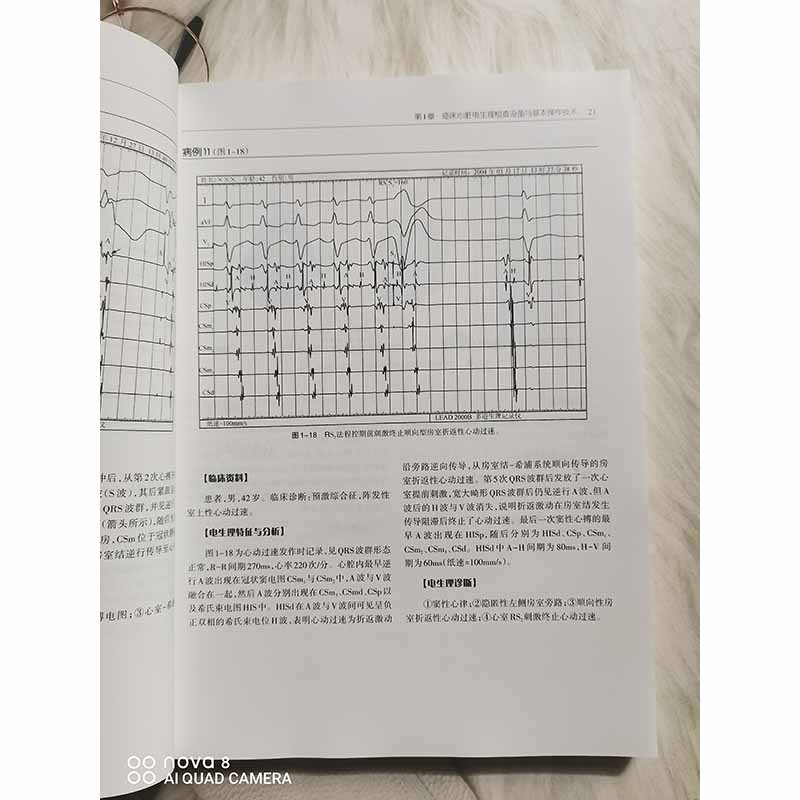 第1章 临床心脏电生理检查设备与基本操作技术 21
病例11(图1-18)
姓名:××× 年龄:42 性别:男
记录时间: 2004年03月12日 13时37分38秒
RS₂S₂=160
I
aVF
V₁
HISp
HISd
CSp
CSm
CSm
CSm
CSd
A
H
V
S
纸速=100mm/s
LEAD 2000B 多道生理记录仪
图1-18 RS₂法程控期前刺激终止顺向型房室折返性心动过速。
【临床资料】
患者,男,42岁。临床诊断:预激综合征,阵发性
室上性心动过速。
【电生理特征与分析】
图1-18为心动过速发作时记录,见QRS波群形态
正常,R-R间期270ms,心率220次/分。心腔内最早逆
行A波出现在冠状窦电图CSm₁与CSm₂中,A波与V波
融合在一起,然后A波分别出现在CSm₃、CSmd、CSp以
及希氏束电图HIS中。HISd在A波与V波间可见呈负
正双相的希氏束电位H波,表明心动过速为折返激动
沿旁路逆向传导,从房室结-希浦系统顺向传导的房
室折返性心动过速。第5次QRS波群后发放了一次心
室提前刺激,宽大畸形QRS波群后仍见逆行A波,但A
波后的H波与V波消失,说明折返激动在房室结发生
传导阻滞后终止了心动过速。最后一次窦性心搏的最
早A波出现在HISp,随后分别为HISd、CSp、CSm₁、
CSm₂、CSm₃、CSd。HISd中A-H间期为80ms,H-V间
期为60ms(纸速=100mm/s)。
【电生理诊断】
①窦性心律;②隐匿性左侧房室旁路;③顺向性房
室折返性心动过速;④心室RS₂刺激终止心动过速。
冲后,从第2次心搏
(S波),其后紧跟
QRS波群,并见逆
(箭头所示),随后
房,CSm位于冠状
房室结逆行传导至
搏电图;③心室-希
nova 8
AI QUAD CAMERA